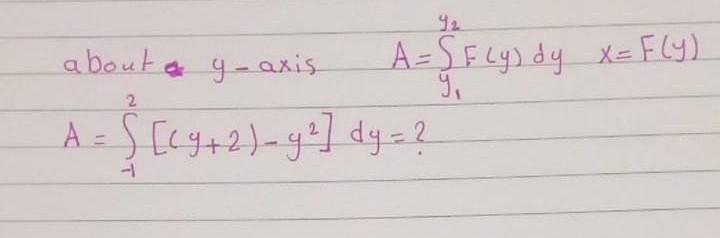 about y-axis A = ∫_{y₁}^{y₂} F(y) dy x = F(y)
A = ∫_{-1}^{2} [(y+2) - y²] dy = ?